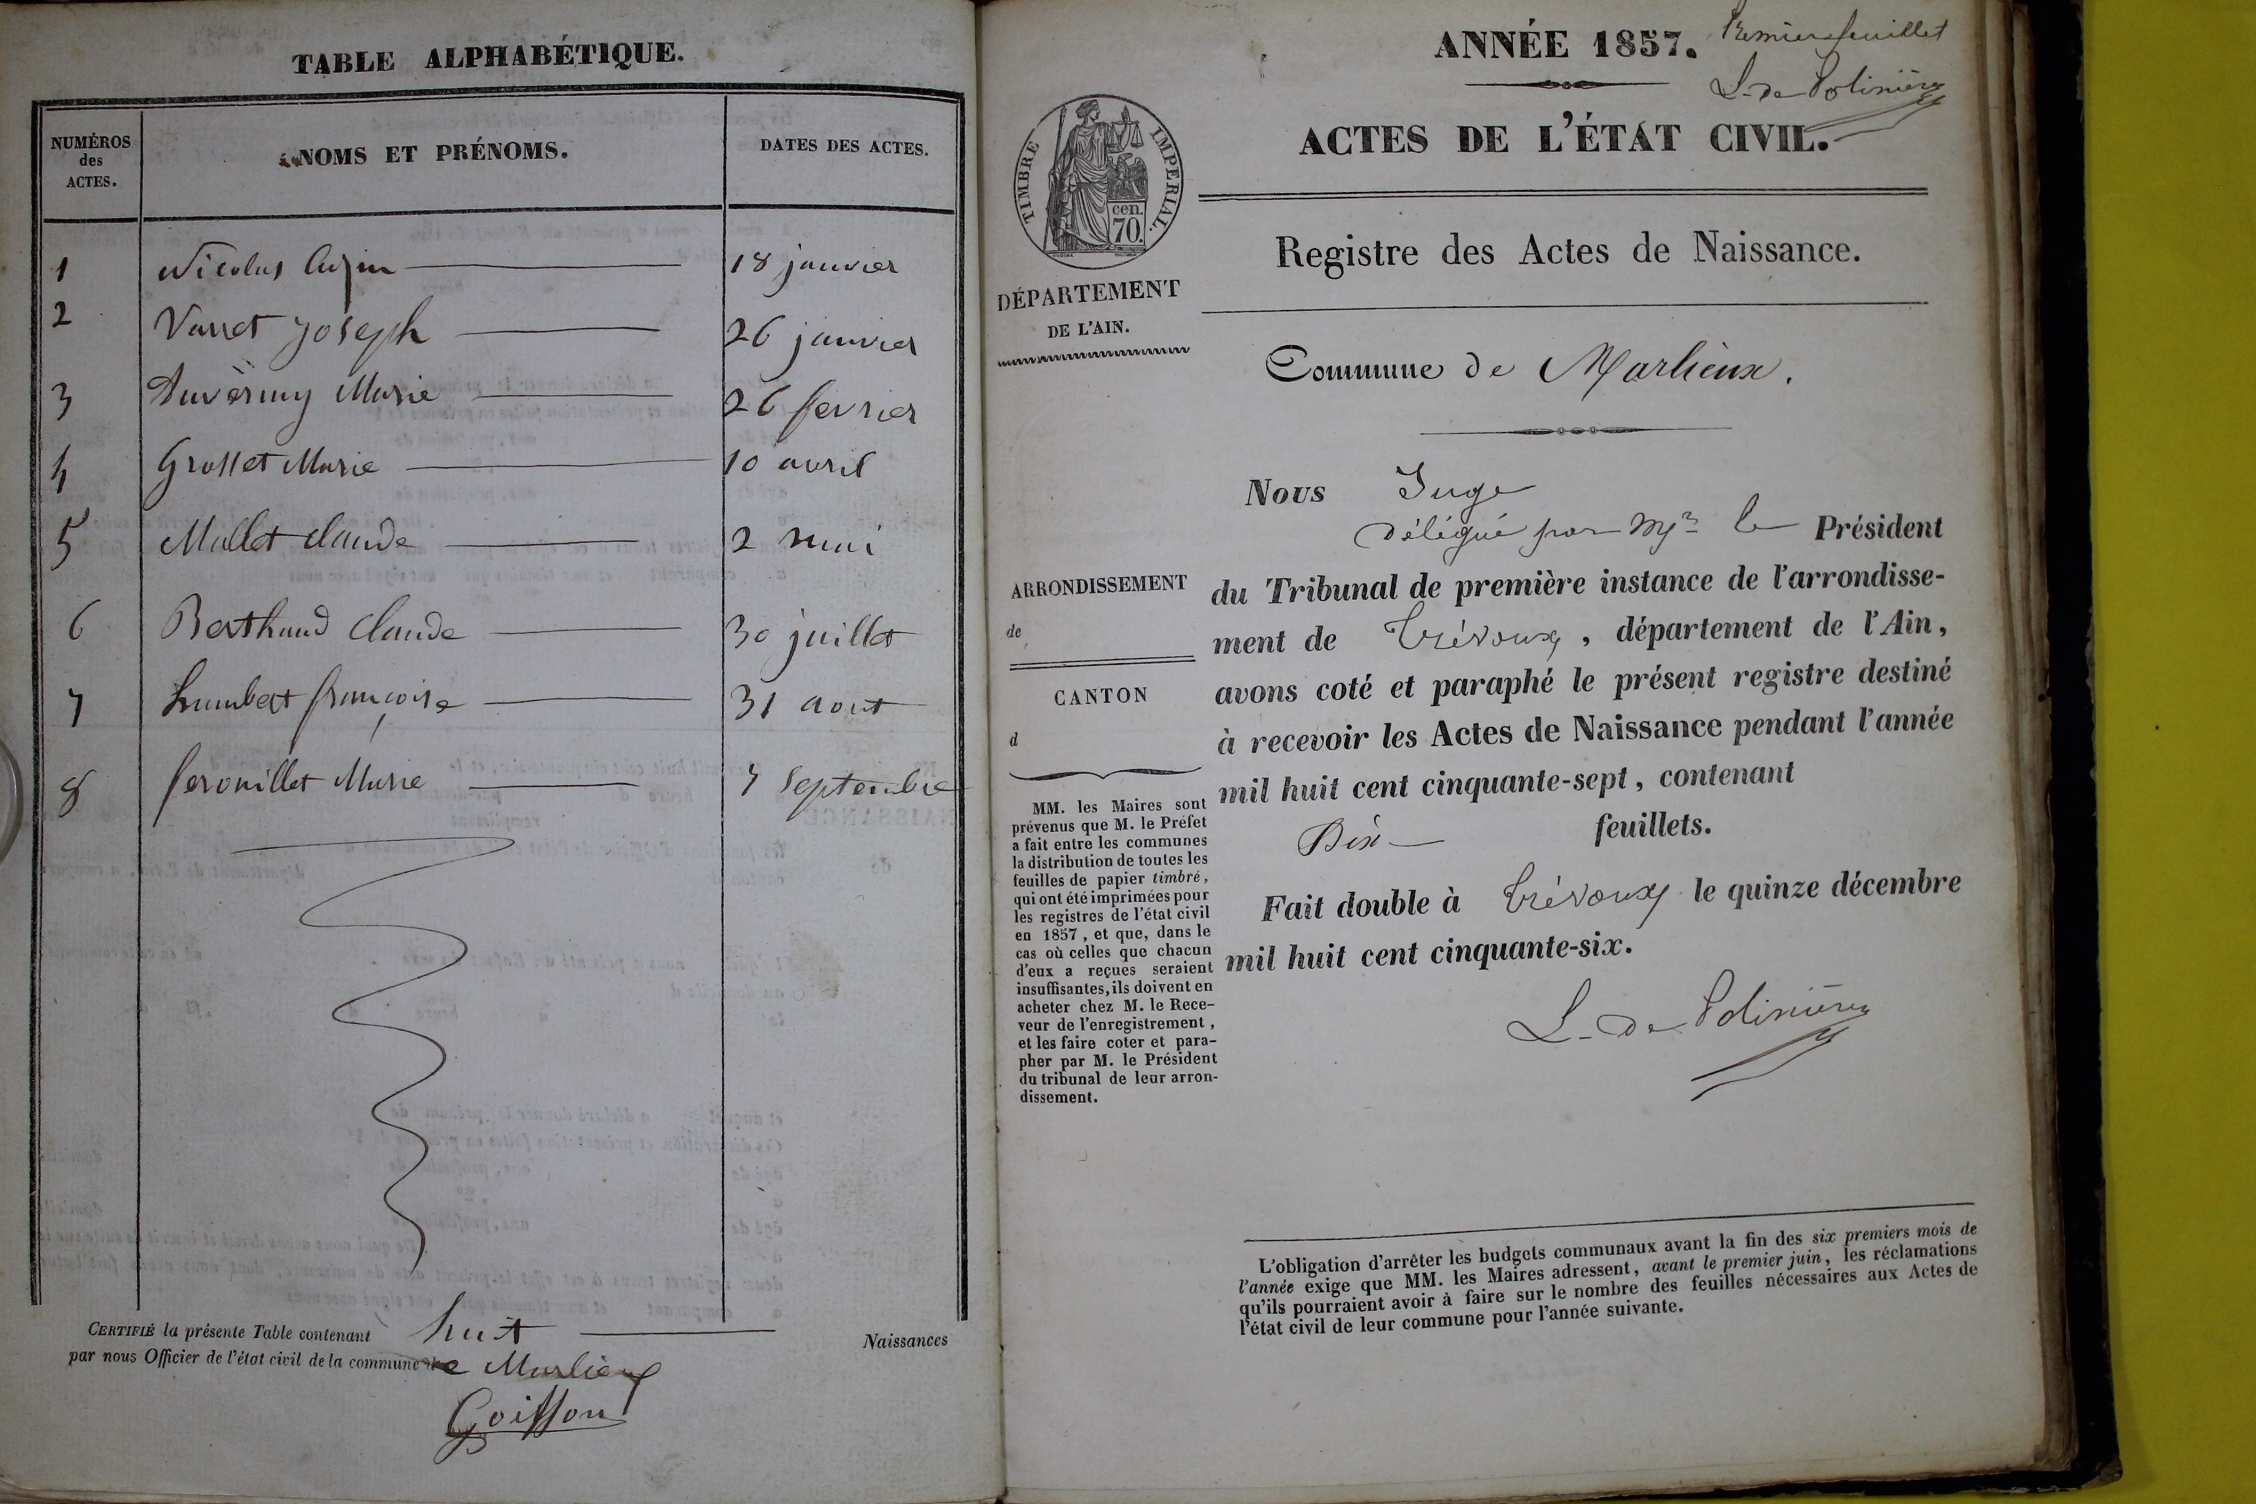 TABLE ALPHABÉTIQUE.
NUMÉROS
des
ACTES.
NOMS ET PRÉNOMS.
DATES DES ACTES.
1 Nicolas 18 janvier
2 Joseph 26 janvier
3 Marie 26 fevrier
4 Grosset Marie 10 avril
5 Mallet claude 2 mai
6 Berthaud Claude 30 juillet
7 humbert françoise 31 aout
8 ferouillet Marie 7 Septembre
CERTIFIÉ la présente Table contenant huit Naissances
par nous Officier de l'état civil de la commune de Marlieux
Goiffon
Premier feuillet
L. de Polinière
ANNÉE 1857.
ACTES DE L'ÉTAT CIVIL.
TIMBRE IMPERIAL.
cen.
70.
Registre des Actes de Naissance.
DÉPARTEMENT
DE L'AIN.
Commune de Marlieux.
ARRONDISSEMENT
de
CANTON
d
MM. les Maires sont
prévenus que M. le Préfet
a fait entre les communes
la distribution de toutes les
feuilles de papier timbré,
qui ont été imprimées pour
les registres de l'état civil
en 1857, et que, dans le
cas où celles que chacun
d'eux a reçues seraient
insuffisantes, ils doivent en
acheter chez M. le Rece-
veur de l'enregistrement,
et les faire coter et para-
pher par M. le Président
du tribunal de leur arron-
dissement.
Nous Juge
Délégué par Mr le Président
du Tribunal de première instance de l'arrondisse-
ment de Trévoux, département de l'Ain,
avons coté et paraphé le présent registre destiné
à recevoir les Actes de Naissance pendant l'année
mil huit cent cinquante-sept, contenant
Dix feuillets.
Fait double à Trévoux le quinze décembre
mil huit cent cinquante-six.
L. de Polinière
L'obligation d'arrêter les budgets communaux avant la fin des six premiers mois de
l'année exige que MM. les Maires adressent, avant le premier juin, les réclamations
qu'ils pourraient avoir à faire sur le nombre des feuilles nécessaires aux Actes de
l'état civil de leur commune pour l'année suivante.